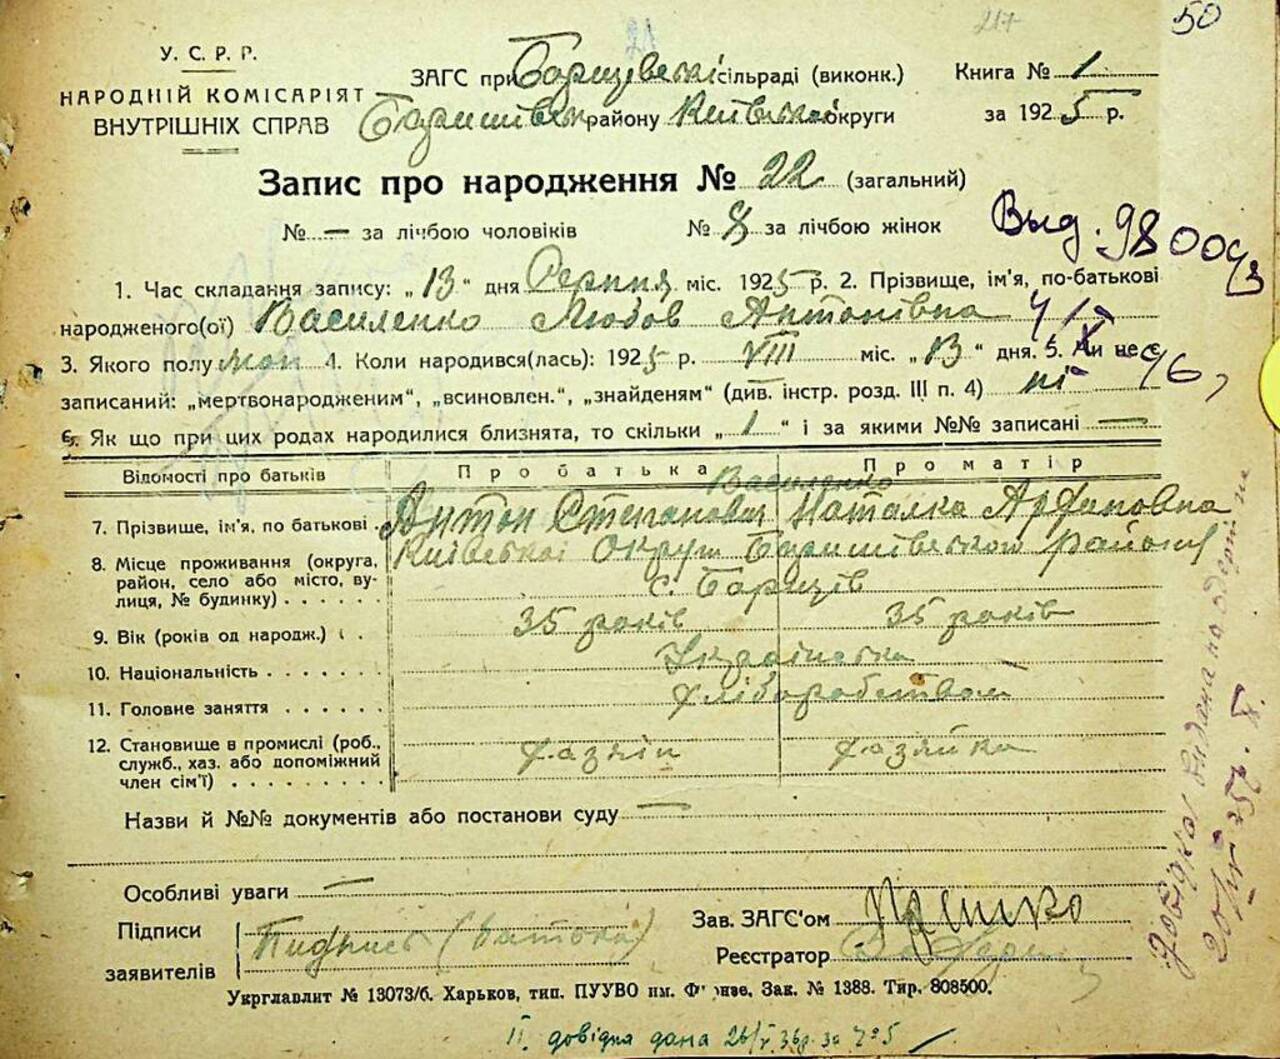 50
217
У. С. Р. Р.
НАРОДНІЙ КОМІСАРІЯТ
ВНУТРІШНІХ СПРАВ
ЗАГС при Баришевські сільраді (виконк.)
Баришівськ району Київської округи
Книга № 1
за 1925 р.
Запис про народження № 22 (загальний)
№ — за лічбою чоловіків № 8 за лічбою жінок
Выд. 98009/3
1. Час складання запису: „13" дня Серпня міс. 1925 р. 2. Прізвище, ім'я, по-батькові
народженого(ої) Василенко Любов Антонівна
3. Якого полу жоп 4. Коли народився(лась): 1925 р. VIII міс. „13" дня. 5. Чи не є
записаний: „мертвонародженим", „всиновлен.", „знайденям" (див. інстр. розд. III п. 4) ні
6. Як що при цих родах народилися близнята, то скільки „1" і за якими №№ записані —
Відомості про батьків Про батька Про матір
Василенко
7. Прізвище, ім'я, по батькові Антон Степанович Наталка
8. Місце проживання (округа, район, село або місто, вулиця, № будинку) Київської Округи Баришівського району
с. Баришів
9. Вік (років од народж.) 35 років 35 років
10. Національність Українська
11. Головне заняття Хліборобством
12. Становище в промислі (роб., служб., хаз. або допоміжний член сім'ї) хазяїн хазяйка
Назви й №№ документів або постанови суду —
Особливі уваги —
Підписи
заявителів
Пидпись (батька)
Зав. ЗАГС'ом
Реєстратор
Укрглавлит № 13073/б. Харьков, тип. ПУУВО им. Фрунзе. Зак. № 1388. Тир. 808500.
II. довідка дана 26/V 36р. за № 5
Довідка видана